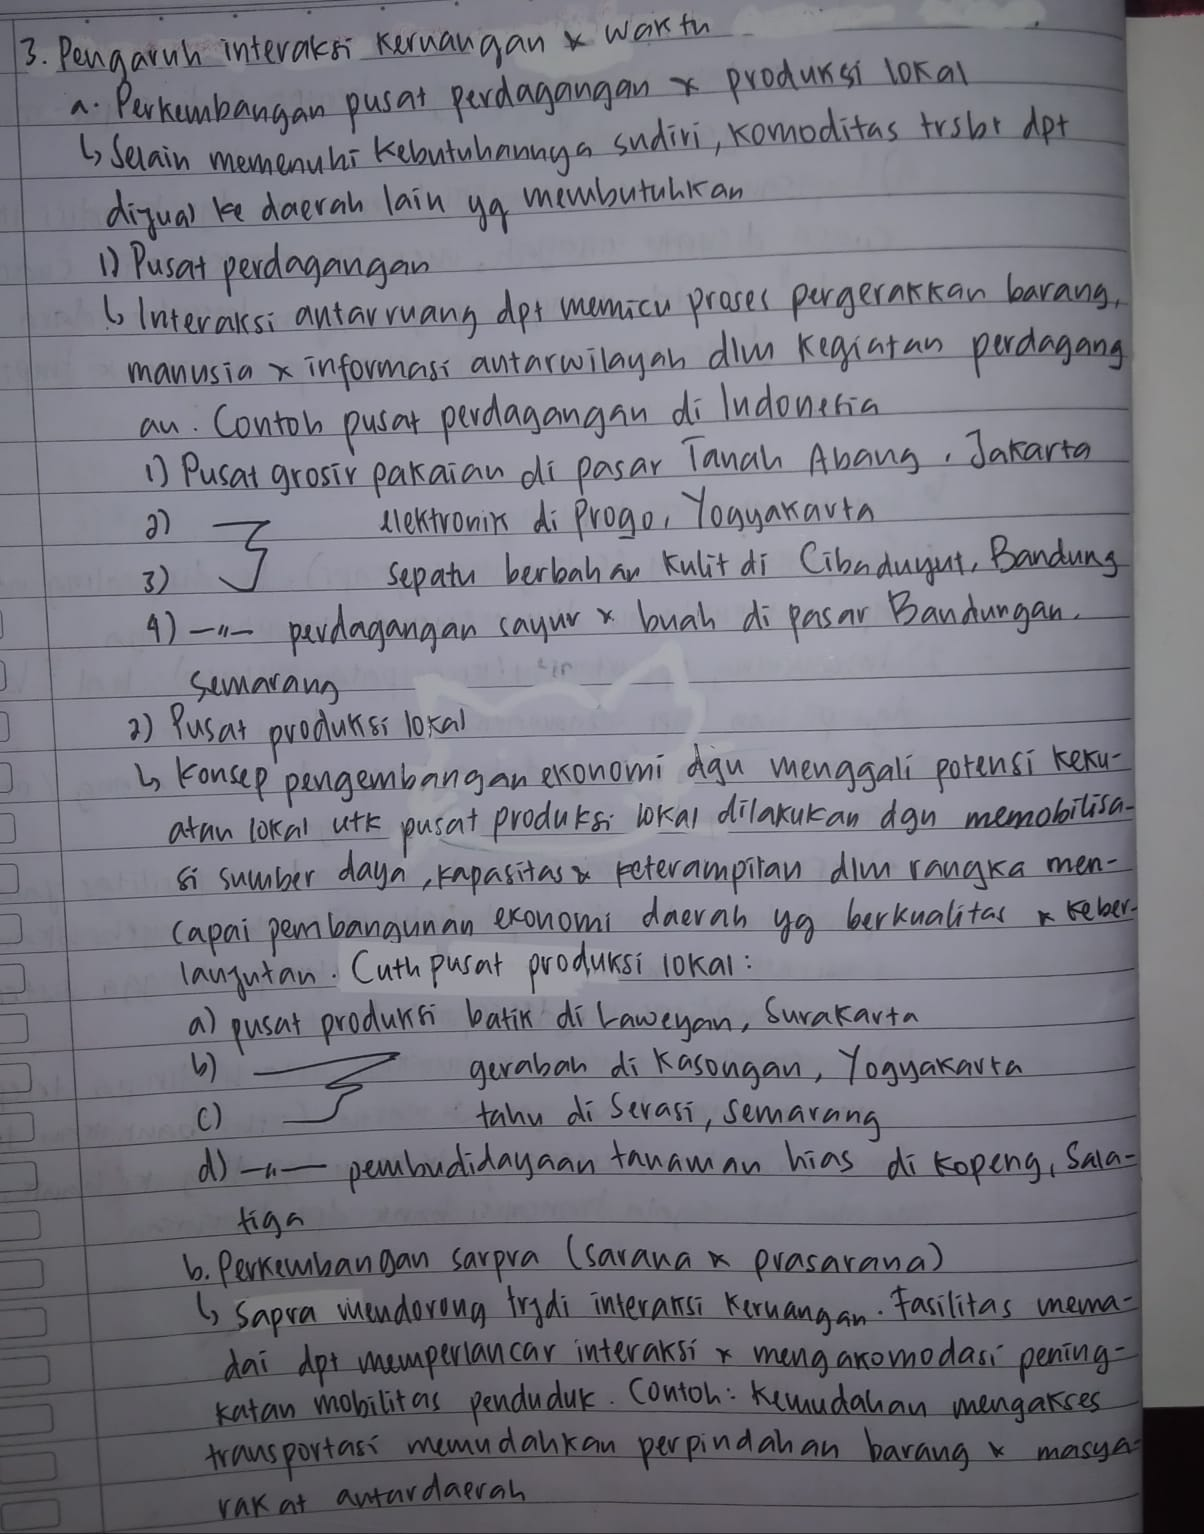 3. Pengaruh interaksi Keruangan & waktu
a. Perkembangan pusat perdagangan & produksi lokal
↳ Selain memenuhi kebutuhannya sndiri, komoditas trsbt dpt
dijual ke daerah lain yg membutuhkan
1) Pusat perdagangan
↳ Interaksi antarruang dpt memicu proses pergerakkan barang,
manusia & informasi antarwilayah dlm kegiatan perdagang
an. Contoh pusat perdagangan di Indonesia
1) Pusat grosir pakaian di pasar Tanah Abang, Jakarta
2) elektronik di Progo, Yogyakarta
3) sepatu berbahan kulit di Cibaduyut, Bandung
4) —"— perdagangan sayur & buah di pasar Bandungan,
Semarang
2) Pusat produksi lokal
↳ Konsep pengembangan ekonomi dgn menggali potensi keku-
atan lokal utk pusat produksi lokal dilakukan dgn memobilisa-
si sumber daya, kapasitas & keterampilan dlm rangka men-
capai pembangunan ekonomi daerah yg berkualitas & keber-
lanjutan. Cnth pusat produksi lokal:
a) pusat produksi batik di Laweyan, Surakarta
b) gerabah di Kasongan, Yogyakarta
c) tahu di Serasi, Semarang
d) —"— pembudidayaan tanaman hias di Kopeng, Sala-
tiga
b. Perkembangan sarpra (sarana & prasarana)
↳ Sapra mendorong trjdi interaksi keruangan. Fasilitas mema-
dai dpt memperlancar interaksi & mengakomodasi pening-
katan mobilitas penduduk. Contoh: Kemudahan mengakses
transportasi memudahkan perpindahan barang & masya-
rakat antardaerah